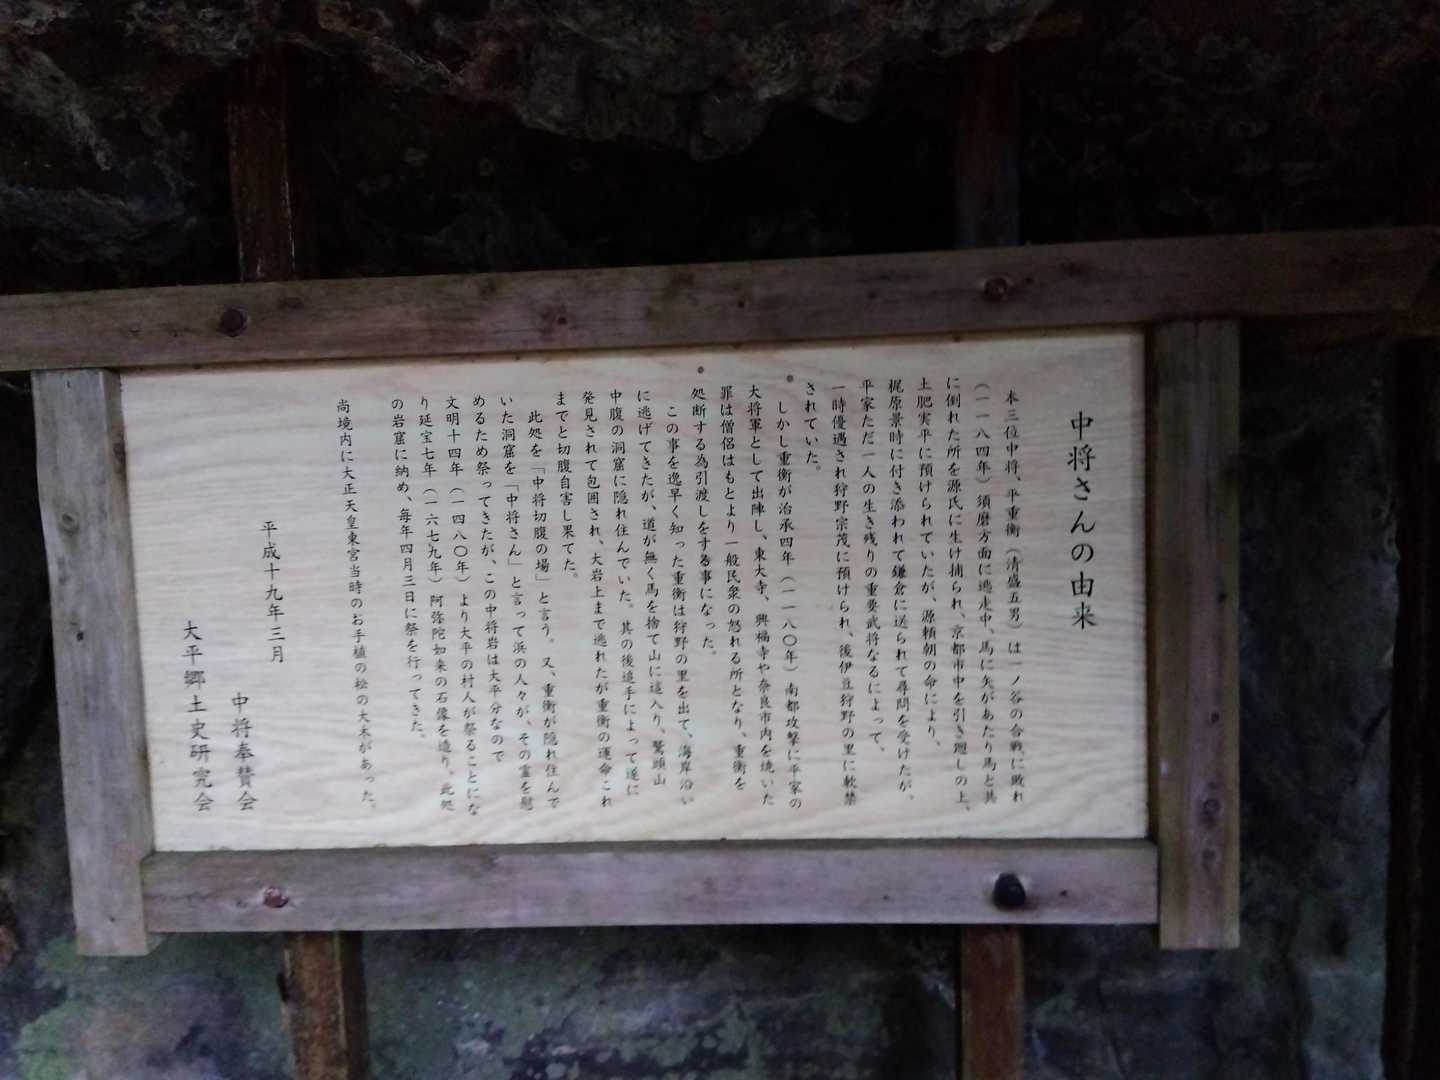 中将さんの由来
本三位中将、平重衡（清盛五男）は一ノ谷の合戦に敗れ
（一一八四年）須磨方面に逃走中、馬に矢があたり馬と其
に倒れた所を源氏に生け捕られ、京都市中を引き廻しの上、
土肥実平に預けられていたが、源頼朝の命により、
梶原景時に付き添われて鎌倉に送られて尋問を受けたが、
平家ただ一人の生き残りの重要武将なるによって、
一時優遇され狩野宗茂に預けられ、後伊豆狩野の里に軟禁
されていた。
しかし重衡が治承四年（一一八〇年）南都攻撃に平家の
大将軍として出陣し、東大寺、興福寺や奈良市内を焼いた
罪は僧侶はもとより一般民衆の怒れる所となり、重衡を
処断する為引渡しをする事になった。
この事を逸早く知った重衡は狩野の里を出て、海岸沿い
に逃げてきたが、道が無く馬を捨て山に這入り、鷲頭山
中腹の洞窟に隠れ住んでいた。其の後追手によって遂に
発見されて包囲され、大岩上まで逃れたが重衡の運命これ
までと切腹自害し果てた。
此処を「中将切腹の場」と言う。又、重衡が隠れ住んで
いた洞窟を「中将さん」と言って浜の人々が、その霊を慰
めるため祭ってきたが、この中将岩は大平分なので
文明十四年（一四八〇年）より大平の村人が祭ることにな
り延宝七年（一六七九年）阿弥陀如来の石像を造り、此処
の岩窟に納め、毎年四月三日に祭を行ってきた。
尚境内に大正天皇東宮当時のお手植の松の大木があった。
平成十九年三月
中将奉賛会
大平郷土史研究会